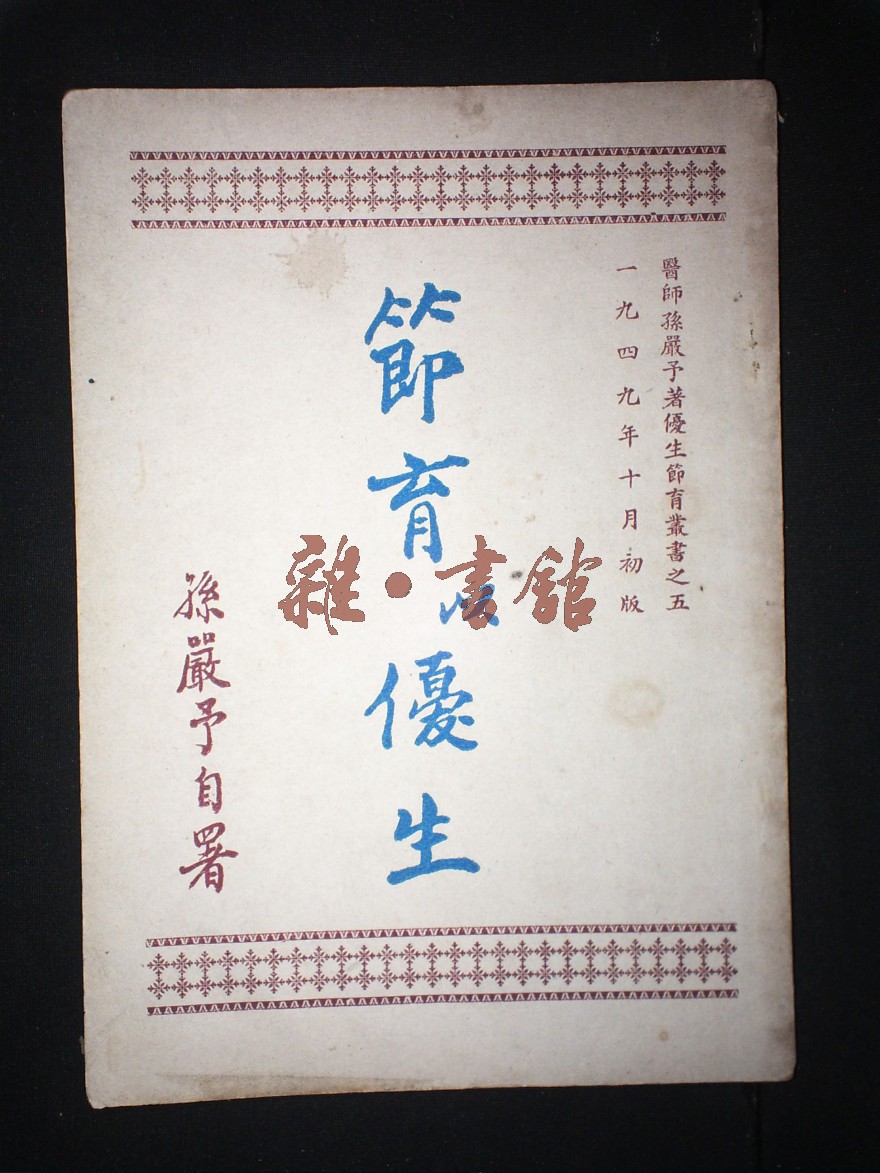 醫師孫嚴予著優生節育叢書之五
一九四九年十月初版
節育優生
孫嚴予自署
雜·書館